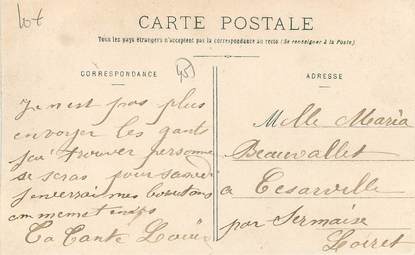 lot
CARTE POSTALE
Tous les pays étrangers n'acceptent pas la correspondance au recto (Se renseigner à la Poste)
CORRESPONDANCE
45
ADRESSE
Je nest pas plus
envoyer les gants
jai trouver personne
se seras pour
jenverrai mes
en meme temps
Ta Tante Louise
Melle Maria
Beauvallet
a Cesarville
par Sermaise
Loiret